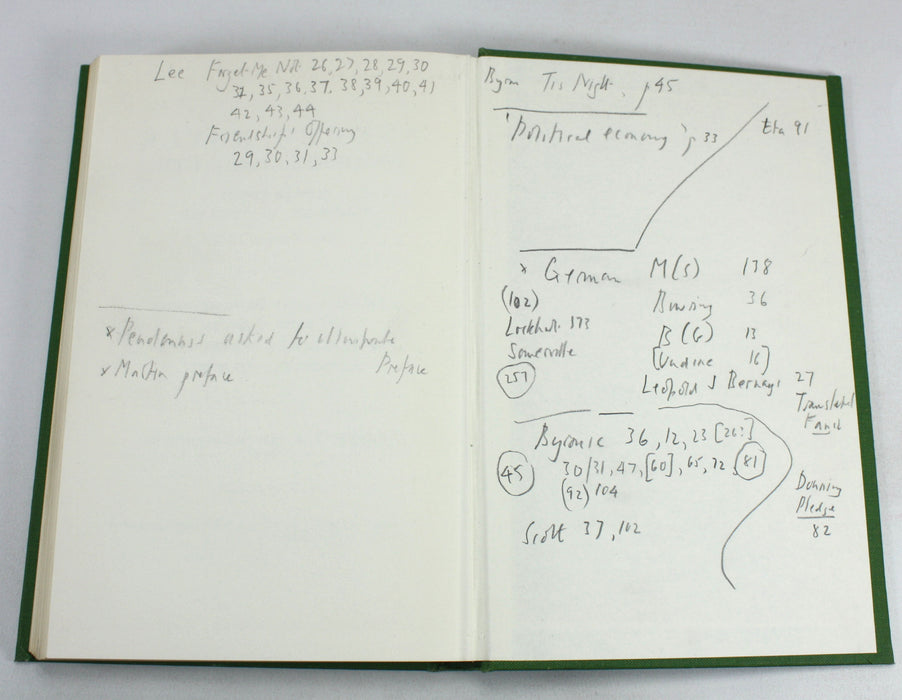 Lee Forget-Me Not 26, 27, 28, 29, 30
32, 35, 36, 37, 38, 39, 40, 41
42, 43, 44
Friendship's Offering
29, 30, 31, 33
x Pendennis asked to
Preface
x Martin preface
Byron Tis Night, p45
'Political economy' p 33
Eta 91
x German M(S) 138
(102) Bowring 36
Lockhart 173 B(G) 13
Somerville [Undine 16]
257 Leopold J Bernays 27
Translated
Faust
Byronic 36, 12, 23 [26?]
45 30/31, 47, [60], 65, 72, 81
(92) 104
Downing
Pledge
82
Scott 37, 102